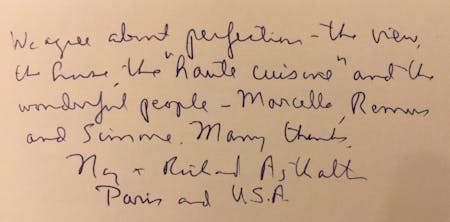 We agree about perfection - the view,
the house, the "haute cuisine" and the
wonderful people - Marcello, Remus
and Simone. Many thanks,
+ Richard
Paris and U.S.A.